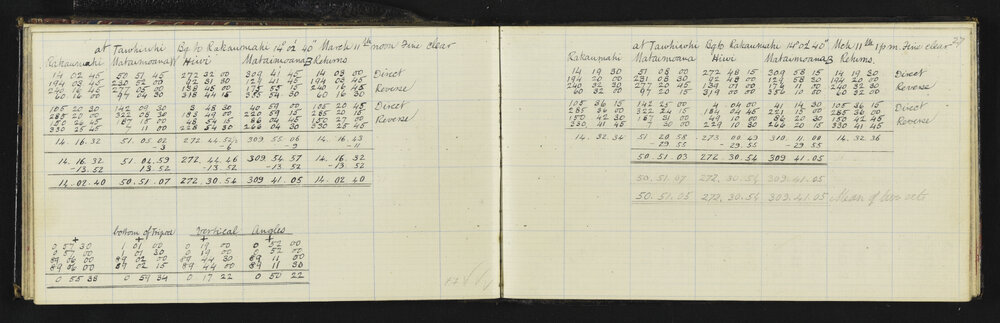 at Tawhiwhi Bg to Rakaumahi 14° 02' 40" March 11th noon Fine clear
Rakaumahi Mataimoana W Hiwi Mataimoana B Returns
14 08 45 50 51 45 272 32 00 309 41 45 14 08 00 Direct
194 08 45 230 52 00 92 31 30 129 41 194 08 45
240 16 45 277 05 00 138 45 00 175 55 15 240 16 45 Reverse
60 16 97 04 30 318 44 15 355 54 30 60 16 30
105 20 30 142 09 30 3 48 30 40 59 00 105 20 45 Direct
285 20 00 322 08 30 183 49 00 220 59 15 285 20 15
150 26 45 187 15 00 48 54 15 86 04 45 150 27 00 Reverse
330 25 45 7 11 00 228 54 30 266 04 30 330 25 45
14. 16. 32 51. 05. 02 272 44. 52½ 309. 55 06 14. 16 43
-3 -6 -9 -11
14. 16. 32 51. 04. 59 272. 44. 46 309. 54 57 14. 16. 32
-13. 52 13. 52 -13. 52 -13. 52 -13. 52
14. 02. 40 50. 51. 07 272. 30. 54 309 41. 05 14. 02 40
bottom of Tripod Vertical Angles
+ + + +
0 57 30 1 01 00 0 19 00 0 52 00
0 57 00 1 01 30 0 19 00 0 52 00
89 06 00 89 02 00 89 44 30 89 11 00
89 06 00 89 02 15 89 44 00 89 11 30
0 55 38 0 59 34 0 17 22 0 50 22
27
at Tawhiwhi Bg to Rakaumahi 14° 02' 40" Mch 11th 1 p m Fine clear
Rakaumahi Mataimoana Hiwi Mataimoana B Returns.
14 19 30 51 08 00 272 48 15 309 58 15 14 19 30 Direct
194 20 00 231 08 30 92 48 00 129 58 30 194 20 00
240 32 30 277 20 45 139 01 00 176 11 00 240 32 30 Reverse
60 32 00 97 20 319 00 30 356 10 60 32 00
105 36 15 142 25 00 4 04 00 41 14 30 105 36 15 Direct
285 36 00 322 24 15 184 04 45 221 15 00 285 36 00
150 42 30 187 31 00 49 10 00 86 20 30 150 42 45 Reverse
330 41 45 7 30 00 229 10 30 266 20 15 330 41 45
14. 32. 34 51 20 58 273 00 49 310. 11. 00 14. 32 36
-29 55 -29. 55 -29. 55
50. 51. 03 272. 30. 54 309 41. 05
50. 51. 07 272. 30. 54 309. 41. 05
50. 51. 05 272. 30. 54 309. 41. 05 Mean of two sets